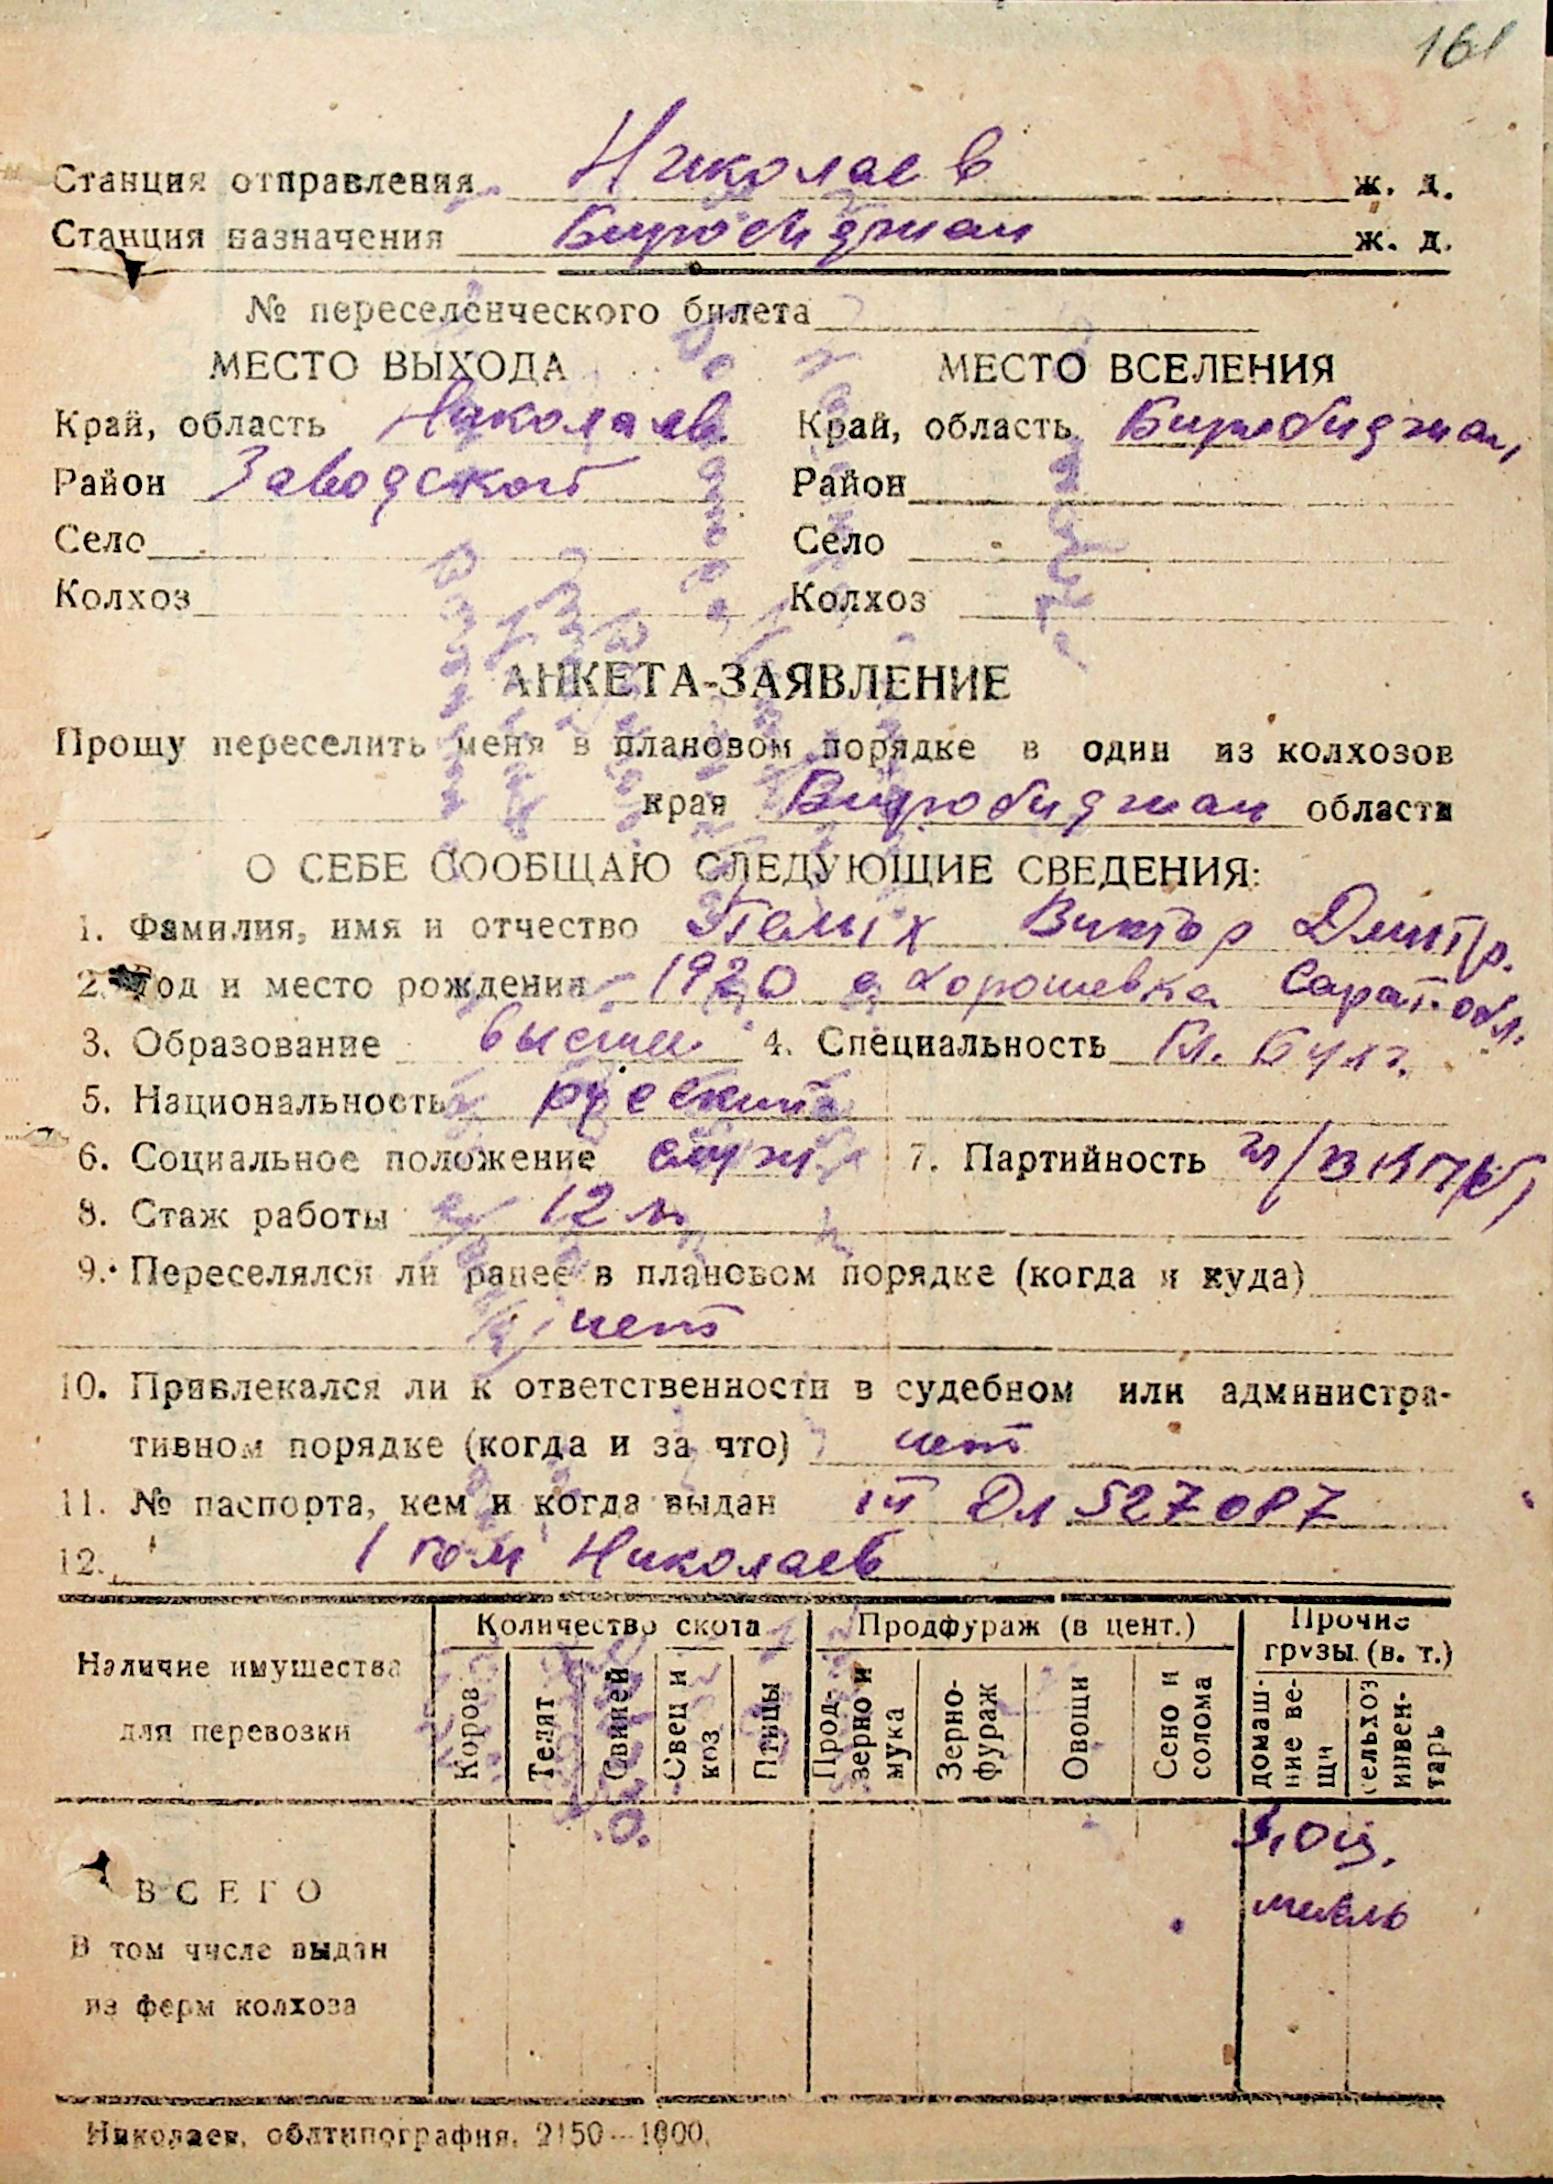 161
Станция отправления Николаев ж. д.
Станция назначения Биробиджан ж. д.
№ переселенческого билета
МЕСТО ВЫХОДА МЕСТО ВСЕЛЕНИЯ
Край, область Николаев. Край, область Биробиджан,
Район Заводской Район
Село Село
Колхоз Колхоз
АНКЕТА-ЗАЯВЛЕНИЕ
Прошу переселить меня в плановом порядке в один из колхозов
края Биробиджан области
О СЕБЕ СООБЩАЮ СЛЕДУЮЩИЕ СВЕДЕНИЯ:
1. Фамилия, имя и отчество Виктор Дмитр.
2. Год и место рождения 1920 с. Хорошевка Сарат. обл.
3. Образование высшее 4. Специальность Гл. Бухг.
5. Национальность русский
6. Социальное положение служ. 7. Партийность ВКП(б)
8. Стаж работы 12 л.
9. Переселялся ли ранее в плановом порядке (когда и куда)
нет
10. Привлекался ли к ответственности в судебном или администра-
тивном порядке (когда и за что) нет
11. № паспорта, кем и когда выдан 527087
12. 1 гом Николаев
Наличие имущества
для перевозки
Количество скота Продфураж (в цент.) Прочие
грузы (в. т.)
Коров Телят Свиней Овец и коз Птицы Прод-зерно и мука Зерно-фураж Овощи Сено и солома домаш-ние ве-щи сельхоз инвен-тарь
мебель
ВСЕГО
В том числе выдан
из ферм колхоза
Николаев, облтипография, 2150—1000.